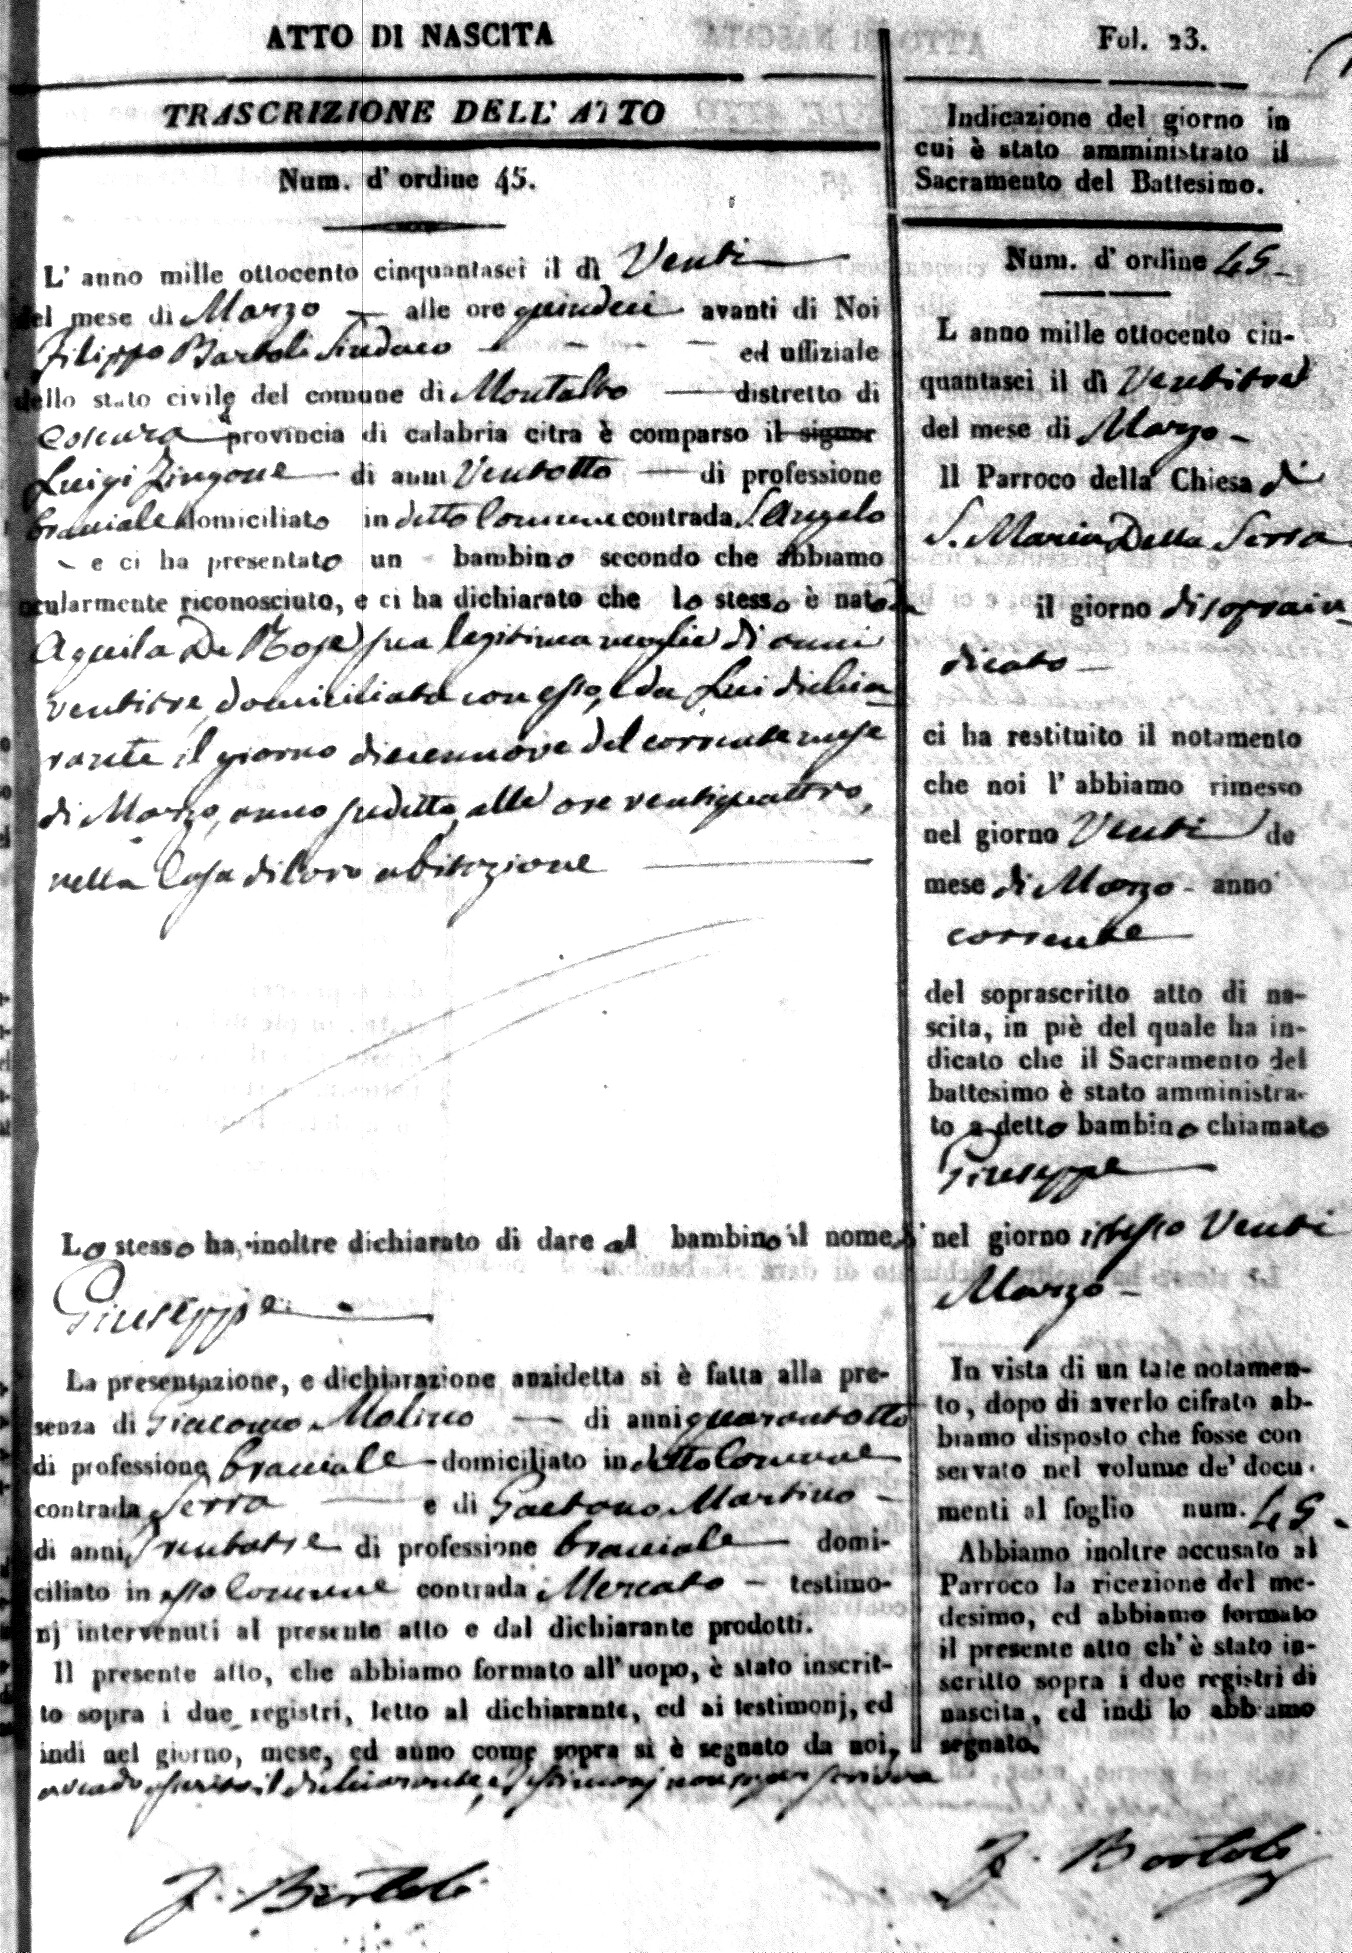 ATTO DI NASCITA
TRASCRIZIONE DELL' ATTO
Num. d' ordine 45.
L' anno mille ottocento cinquantasei il dì Venti
del mese di Marzo alle ore quindeci avanti di Noi
Filippo Bartoli Sindaco ed uffiziale
dello stato civile del comune di Montalto distretto di
Cosenza provincia di calabria citra è comparso il signor
Luigi Zingone di anni Ventotto di professione
bracciale domiciliato in detto Comune contrada S. Angelo
e ci ha presentato un bambino secondo che abbiamo
ocularmente riconosciuto, e ci ha dichiarato che lo stesso è nato da
Aquila De Rose sua legittima moglie di anni
ventitre, domiciliata con esso, e da Lui dichia
rante il giorno diecennove del corrente mese
di Marzo, anno sudetto, alle ore ventiquattro,
nella Casa di loro abitazione
Lo stesso ha, inoltre dichiarato di dare al bambino il nome di
Giuseppe
La presentazione, e dichiarazione anzidetta si è fatta alla pre-
senza di Giacomo Molino di anni quarantotto
di professione bracciale domiciliato in detto Comune
contrada Serra e di Gaetano Martino
di anni trentatre di professione bracciale domi-
ciliato in esso Comune contrada Mercato testimo-
nj intervenuti al presente atto e dal dichiarante prodotti.
Il presente atto, che abbiamo formato all' uopo, è stato inscrit-
to sopra i due registri, letto al dichiarante, ed ai testimonj, ed
indi nel giorno, mese, ed anno come sopra si è segnato da noi,
avendo asserito il dichiarante, e testimonj non saper scrivere
F. Bartoli
Fol. 23.
Indicazione del giorno in
cui è stato amministrato il
Sacramento del Battesimo.
Num. d' ordine 45
L anno mille ottocento cin-
quantasei il dì Ventitre
del mese di Marzo
Il Parroco della Chiesa di
S. Maria Della Serra
il giorno disopra in
dicato
ci ha restituito il notamento
che noi l' abbiamo rimesso
nel giorno Venti de
mese di Marzo anno
corrente
del soprascritto atto di na-
scita, in piè del quale ha in-
dicato che il Sacramento del
battesimo è stato amministra-
to a detto bambino chiamato
Giuseppe
nel giorno istesso Venti
Marzo
In vista di un tale notamen-
to, dopo di averlo cifrato ab-
biamo disposto che fosse con
servato nel volume de' docu-
menti al foglio num. 45
Abbiamo inoltre accusato al
Parroco la ricezione del me-
desimo, ed abbiamo formato
il presente atto ch' è stato in-
scritto sopra i due registri di
nascita, ed indi lo abbiamo
segnato.
F. Bartoli